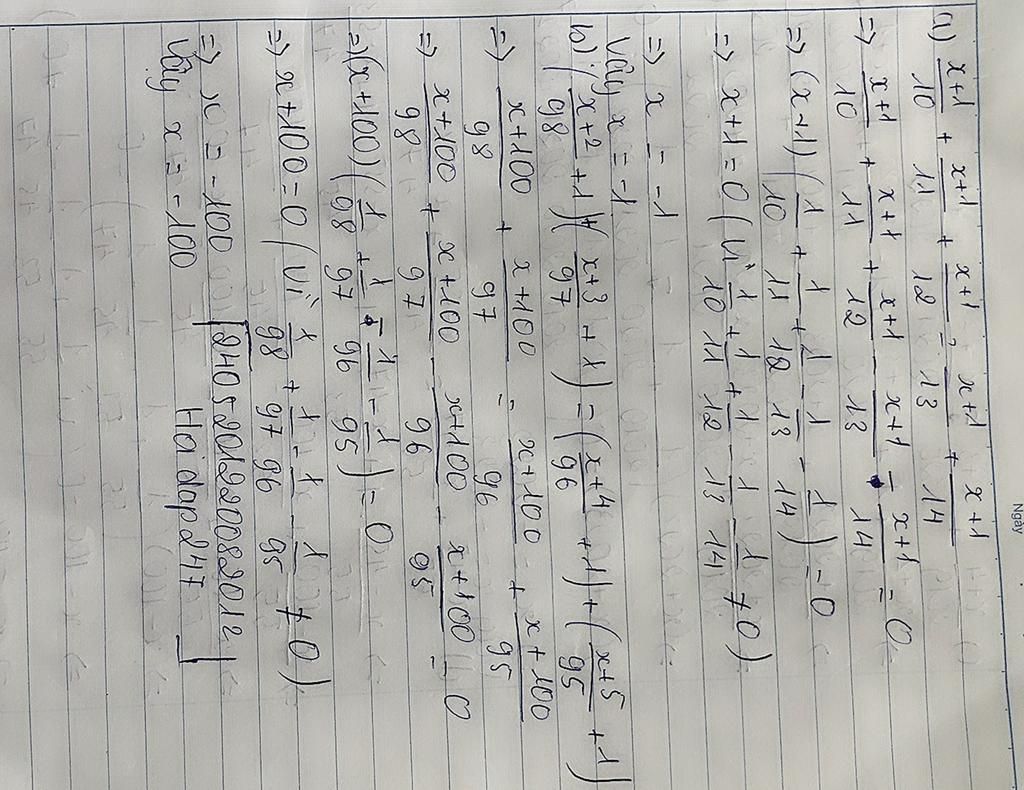 Ngày
a) \frac{x+1}{10} + \frac{x+1}{11} + \frac{x+1}{12} = \frac{x+1}{13} + \frac{x+1}{14}
=> \frac{x+1}{10} + \frac{x+1}{11} + \frac{x+1}{12} - \frac{x+1}{13} - \frac{x+1}{14} = 0
=> (x+1)(\frac{1}{10} + \frac{1}{11} + \frac{1}{12} - \frac{1}{13} - \frac{1}{14}) = 0
=> x+1=0 (Vì \frac{1}{10} + \frac{1}{11} + \frac{1}{12} - \frac{1}{13} - \frac{1}{14} ≠ 0)
=> x = -1
Vậy x = -1
b) (\frac{x+2}{98} + 1) + (\frac{x+3}{97} + 1) = (\frac{x+4}{96} + 1) + (\frac{x+5}{95} + 1)
=> \frac{x+100}{98} + \frac{x+100}{97} = \frac{x+100}{96} + \frac{x+100}{95}
=> \frac{x+100}{98} + \frac{x+100}{97} - \frac{x+100}{96} - \frac{x+100}{95} = 0
=> (x+100)(\frac{1}{98} + \frac{1}{97} - \frac{1}{96} - \frac{1}{95}) = 0
=> x+100=0 (Vì \frac{1}{98} + \frac{1}{97} - \frac{1}{96} - \frac{1}{95} ≠ 0)
=> x = -100
Vậy x = -100
24052012290082012
Hoidap247